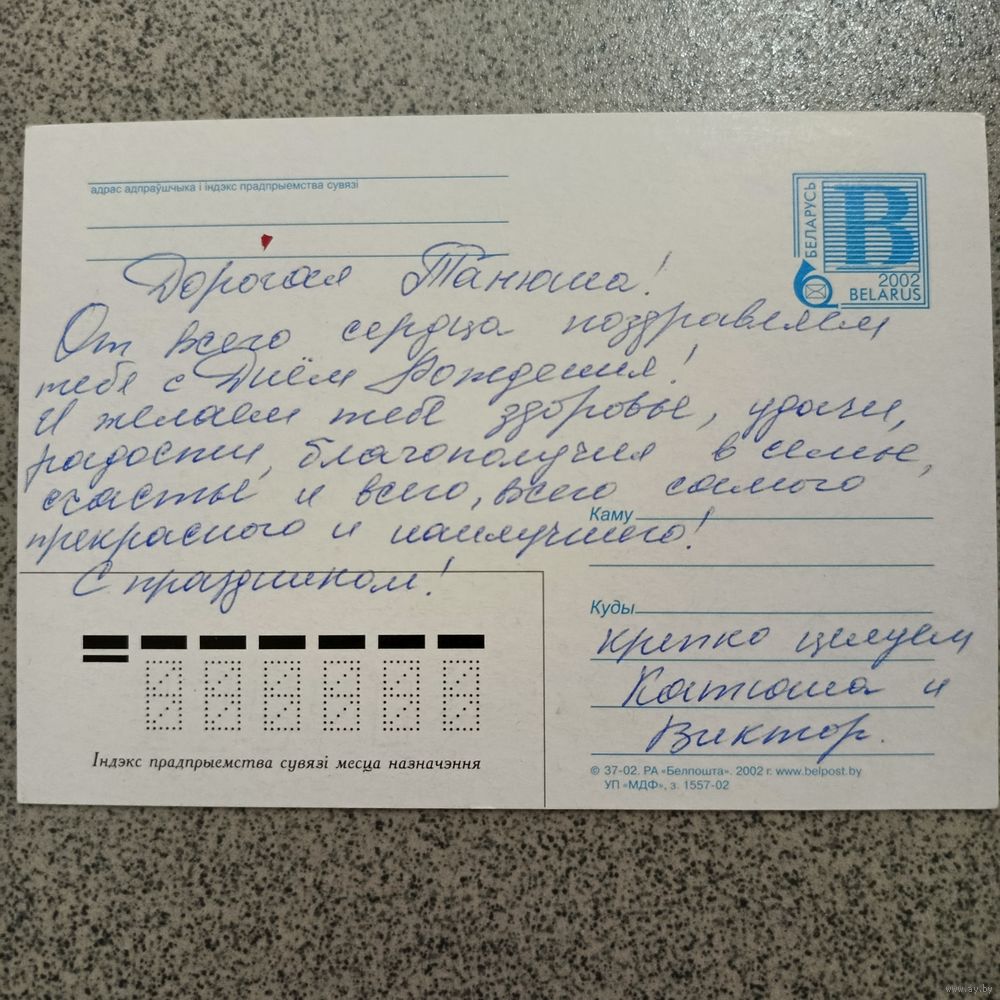 адрас адпраўшчыка і індэкс прадпрыемства сувязі
БЕЛАРУСЬ
B
2002
BELARUS
Дорогая Танюша!
От всего сердца поздравляем
тебя с Днём Рождения!
И желаем тебе здоровье, удачи,
радости, благополучия в семье,
счастье и всего, всего самого
прекрасного и наилучшего!
С праздником!
Каму
Куды
крепко целуем
Катюша и
Виктор.
Індэкс прадпрыемства сувязі месца назначэння
© 37-02. РА «Белпошта». 2002 г. www.belpost.by
УП «МДФ», з. 1557-02
www.ay.by